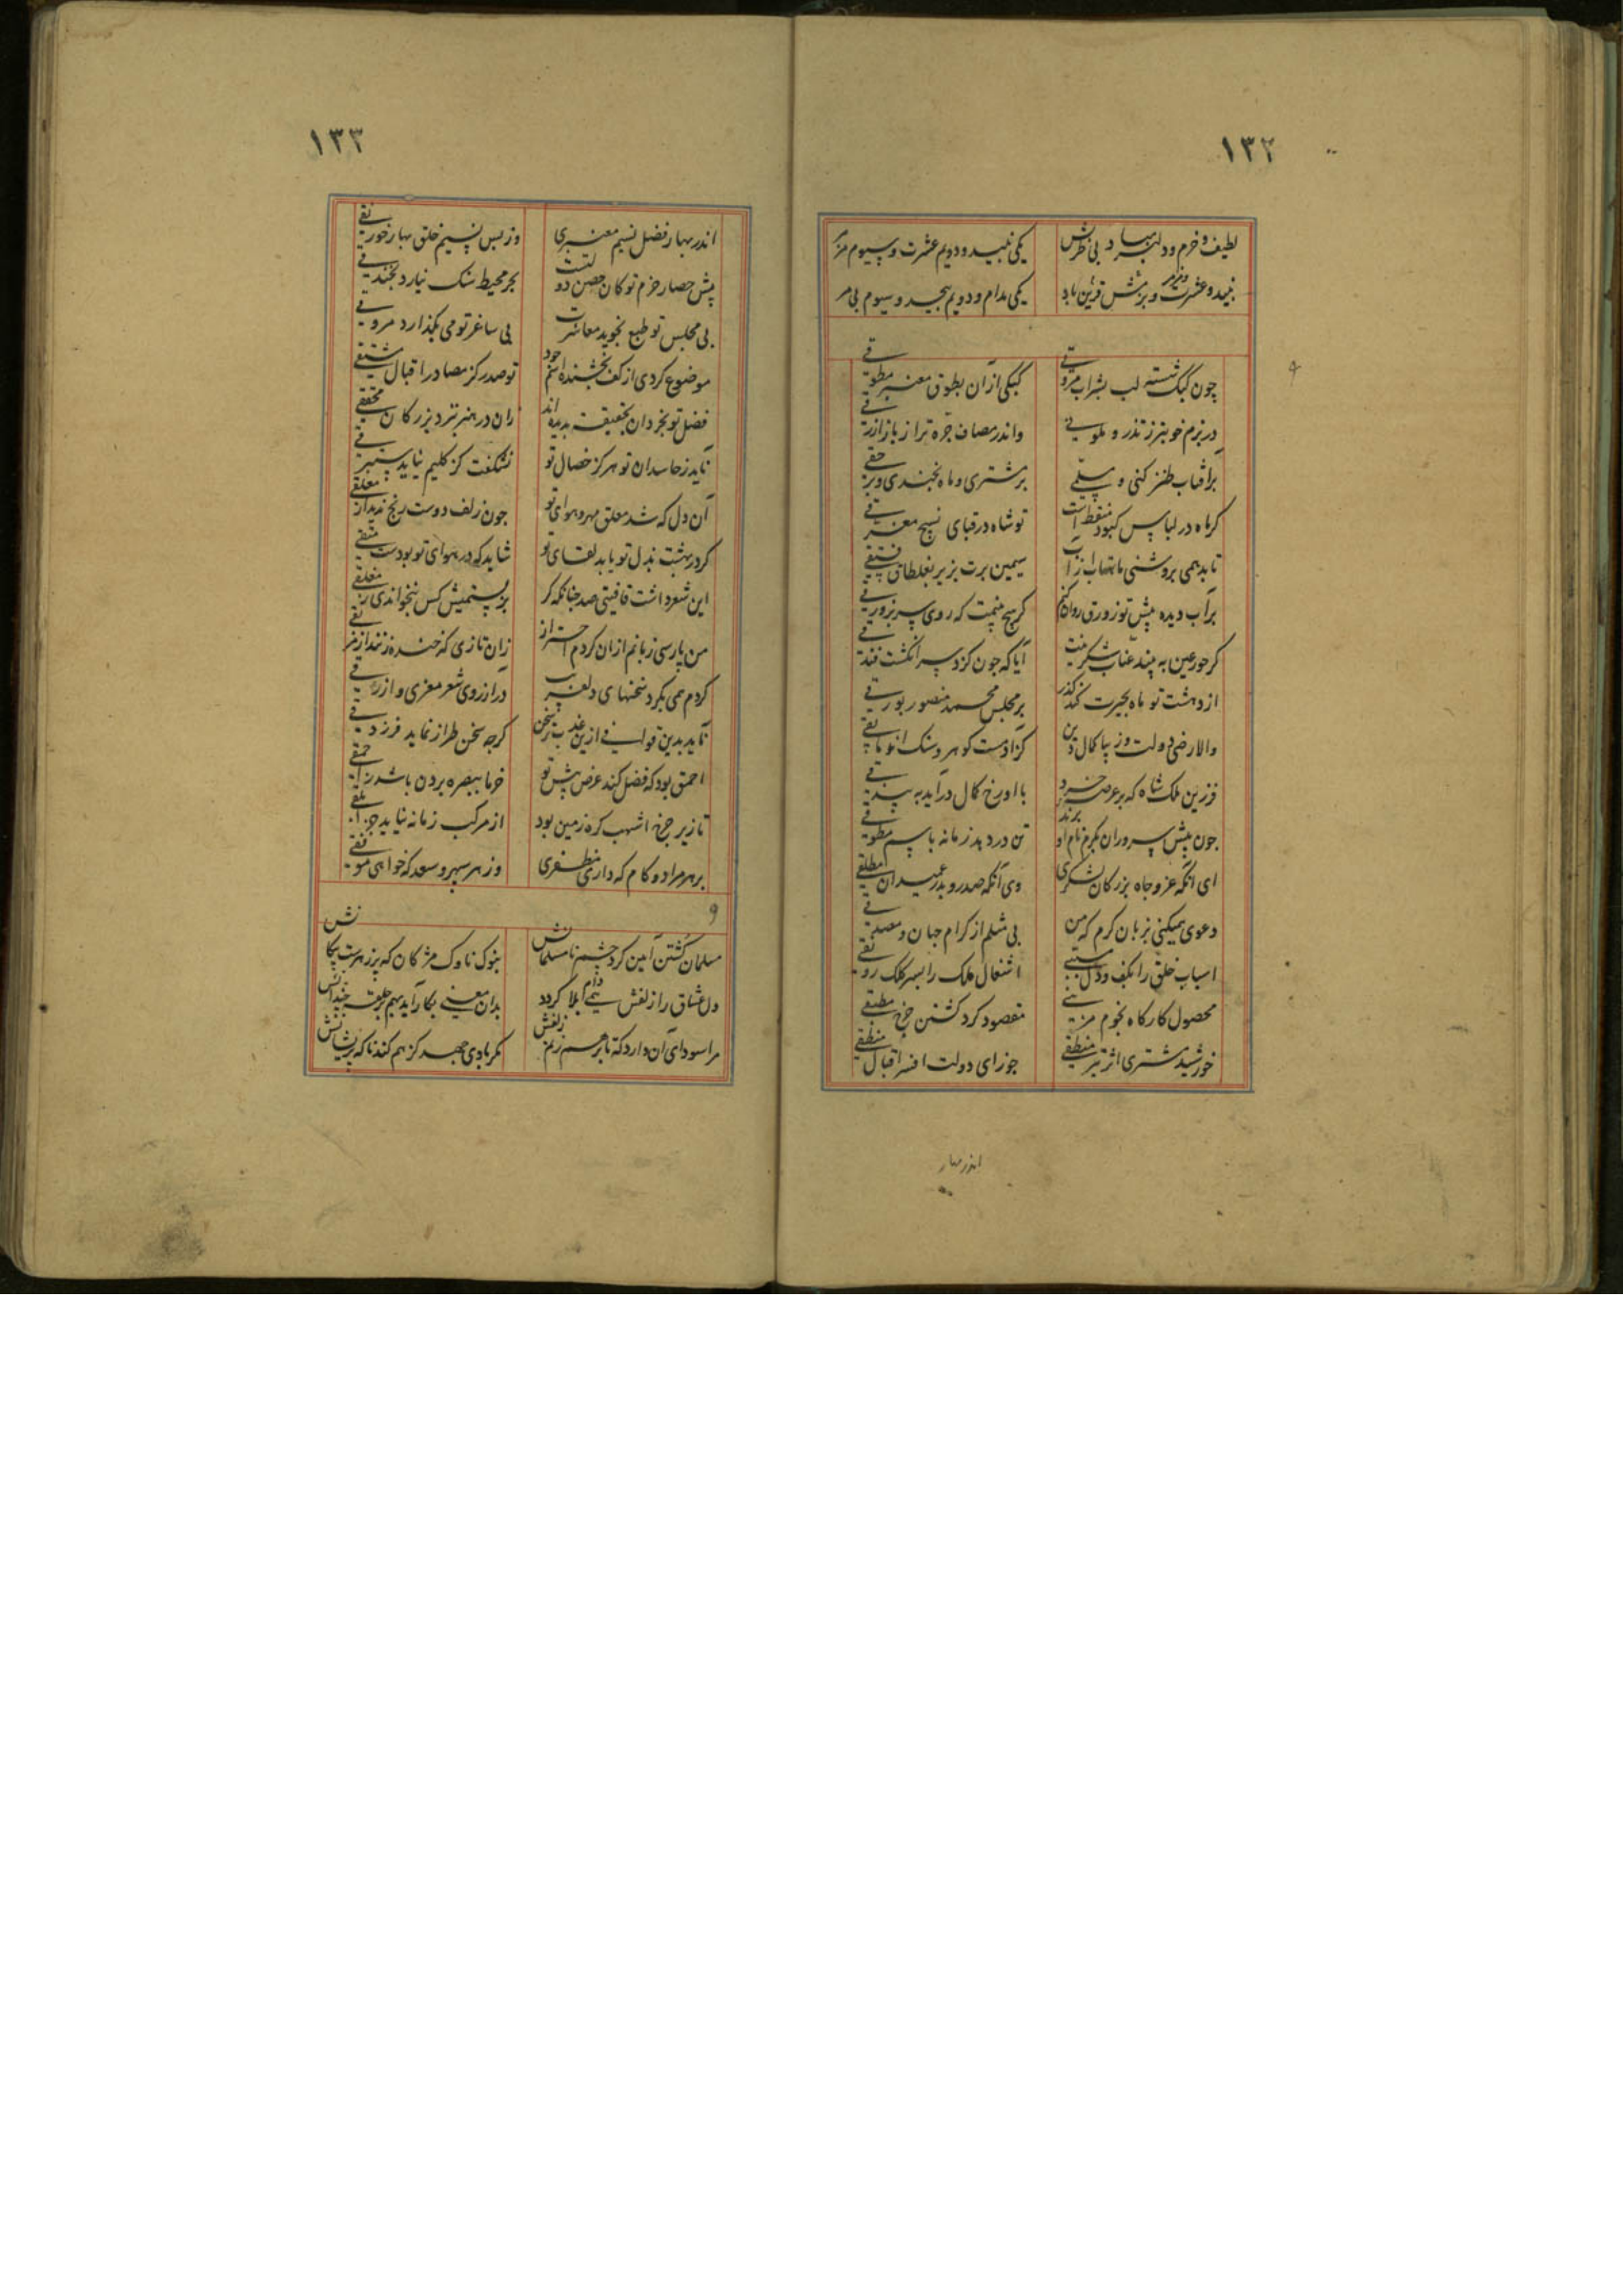 ۱۳۲
لطیف و خرم و دلبر بهار بی نظرش
یکی نبید و دویم عشرت و سیوم
نبید و عشرت و بزمش قرین باد
یکی مدام و دویم بیحد و سیوم بی مر
چون کبک شسته لب بشراب مروقی
کبکی ازان بطوق معنبر مطوقی
در بزم خوبتر ز تذرو ملونی
واندر مصاف جره تر از باز ازرقی
بر آفتاب طنز کنی و
بر مشتری و ماه بخندی و بر حقی
کر ماه در لباس کبود منقط است
تو شاه در قبای نسیج
تابد همی بروشنی ماهتاب ازآب
سیمین برت بزیر بغلطاق فستقی
بر آب دیده پیش تو زورق روان کنم
کر هیچ بینمت که روی سر بزورقی
کر حور عین به بیند عناب شکرینت
آیا که چون کزد سر انکشت فندقی
از دهشت تو ماه بحیرت کند کذر
بر مجلس محمد منصور
والا رضی دولت و زیبا کمال دین
کز دست کوهر و سنک
فرزین ملک شاه که بر عرصه خرد
با او رخ کمال درآید به بیدقی
چون پیش سروران کرم نام او برند
تن در دهد زمانه باسم مطوقی
ای آنکه عز و جاه بزرکان لشکری
وی آنکه صدر و بدر عمیدان مطلقی
دعوی همیکنی بزبان کرم که من
بی مثلم از کرام جهان و مصدقی
اسباب خلق را بکف و دل
اشغال ملک را بسر کلک رونقی
محصول کارکاه نجوم مزینی
مقصود کرد کشتن چرخ مطبقی
خورشید مشتری اثر تیر منطقی
جوزای دولت افسر اقبال
اندر بهار
۱۳۳
اندر بهار فضل نسیم معنبری
وز بس نسیم خلق بهار خورنقی
پیش حصار حزم تو کان حصن دولتست
بحر محیط سنک نیارد بخندقی
بی مجلس تو طبع نجوید معاشرت
بی ساغر تو می نکذارد مروقی
موضوع کردی از کف بخشنده اسم جود
تو صدر کز مصادر اقبال مشتقی
فضل تو بخردان بحقیقت بدیده اند
زان در هنر بنزد بزرکان محققی
ناید ز حاسدان تو هرکز خصال تو
نشکفت کز کلیم نیاید ستبرقی
آن دل که شد معلق مهر و هوای تو
چون زلف دوست رنج ندید از معلقی
کر در بهشت بذل تو یابد لقای تو
شاید که در هوای تو بودست متقی
این شعر داشت قافیتی صد چنانکه کر
من پارسی زبانم ازان کردم احتراز
زان تازی که خنده زنند از
کردم همی بکرد سخنهای دلفریب
در آرزوی شعر معزی و ازرقی
ناید بدین قوافی ازین عذب تر سخن
کرچه سخن طراز نماید فرزدقی
احمق بود که فضل کند عرض پیش تو
خرما ببصره بردن باشد ز احمقی
تا زیر چرخ اشهب کره زمین بود
از مرکب زمانه نیاید جز ابلقی
بر هر مراد و کام که داری مظفری
وز هر سپهر و سعد که خواهی موفقی
مسلمان کشتن آیین کرد چشم نامسلمانش
بنوک ناوک مژکان که پر زهرست پیکانش
دل عشاق را زلفش همی دام بلا کردد
بدان معنی بکار آید بهم حلقه چندانش
مرا سودای آن دارد که تا بر هم زنم زلفش
مکر بادی جهد کز هم کند ناکه پریشانش